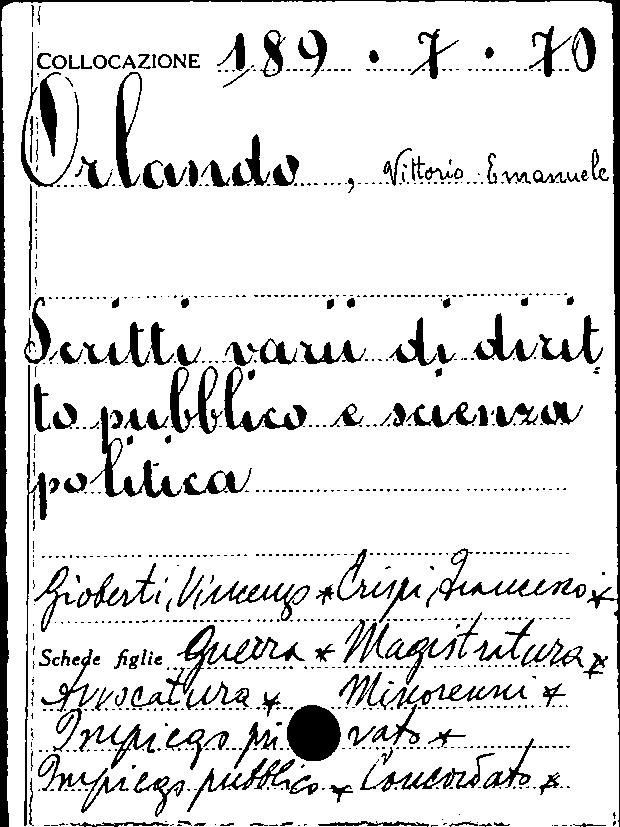 COLLOCAZIONE 189 . 7 . 70
Orlando, Vittorio Emanuele
Scritti varii di dirit=
to pubblico e scienza
politica
Gioberti, Vincenzo * Crispi, Francesco *
Schede figlie Guerra * Magistratura *
Avvocatura * Minorenni *
Impiego privato *
Impiego pubblico * Concordato *